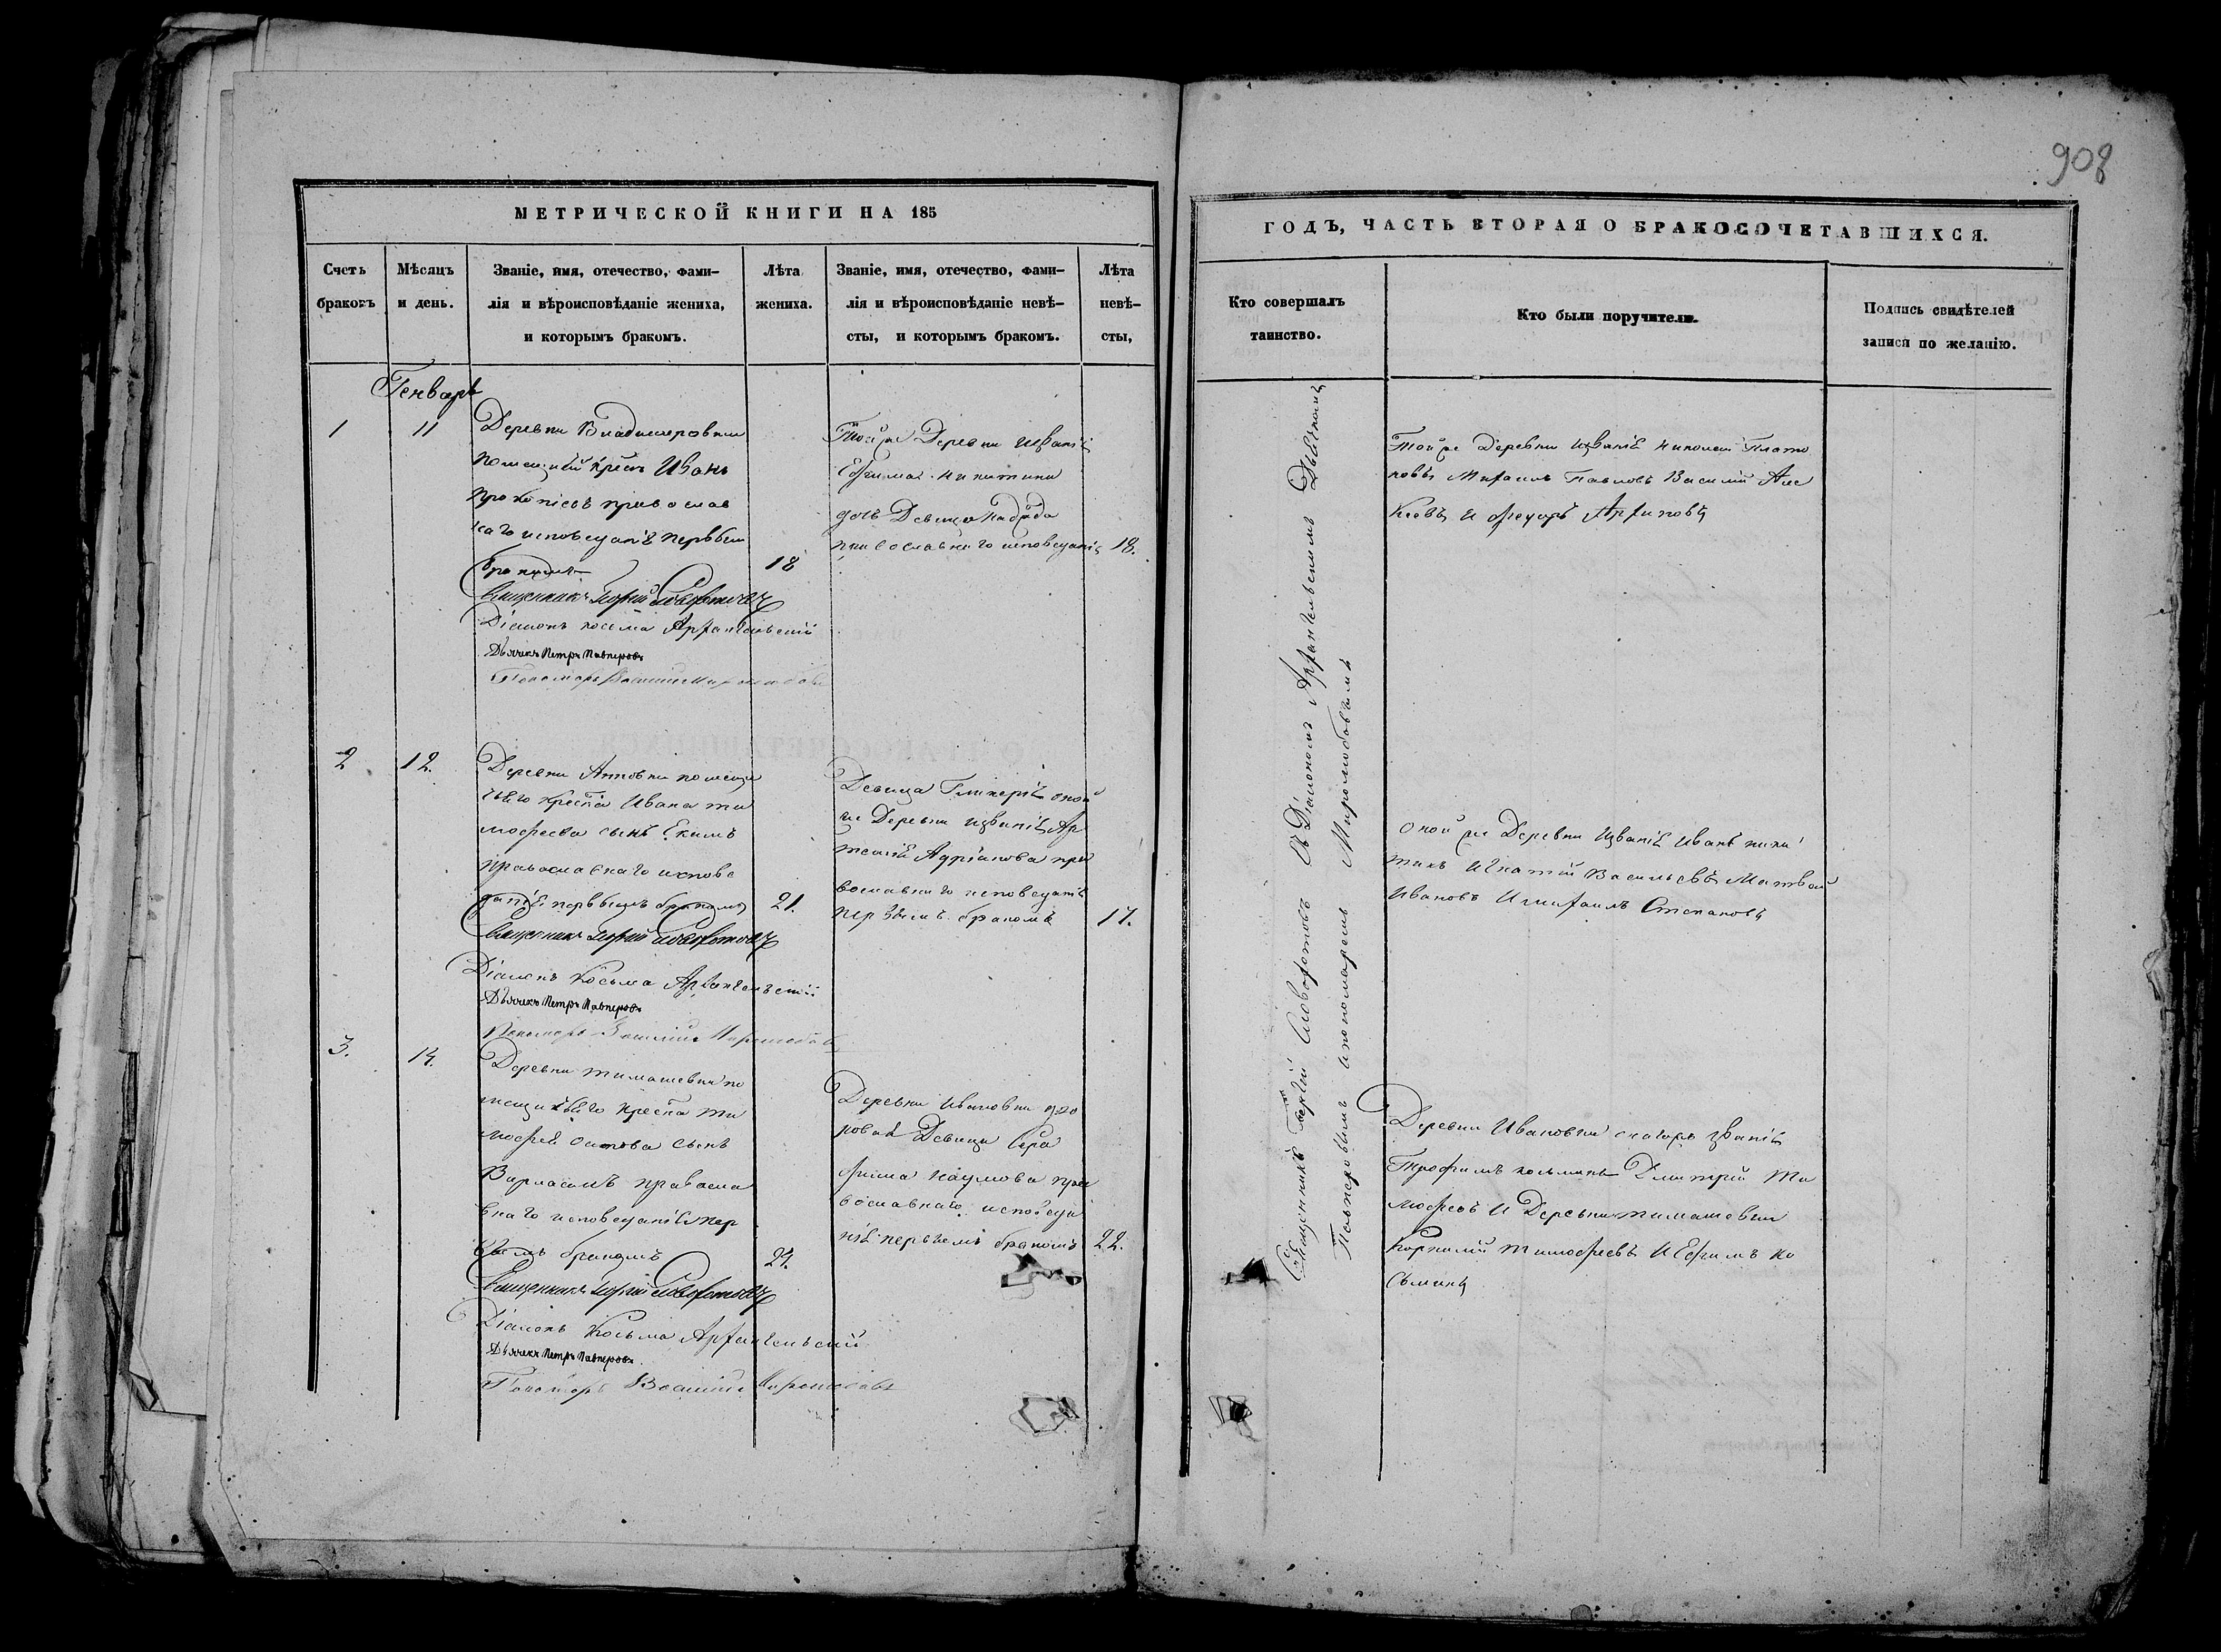 908
МЕТРИЧЕСКОЙ КНИГИ НА 185
Счетъ
браковъ
Мѣсяцъ
и день.
Званіе, имя, отечество, фами-
лія и вѣроисповѣданіе жениха,
и которымъ бракомъ.
Лѣта
жениха.
Званіе, имя, отечество, фами-
лія и вѣроисповѣданіе невѣ-
сты, и которымъ бракомъ.
Лѣта
невѣ-
сты,
Генварь
1
11
Деревни Владимеровки
Иванъ
Прокопіевъ православ
наго исповеданіе первымъ
бракомъ
18
Священникъ
Діаконъ Косьма Архангельскій
Дьячекъ Петръ Павперовъ
Пономарь Василий Миролюбовъ
Тойже Деревни Званіе
Ефима Никитина
дочь Девица
православнаго исповеданіе
18.
2
12.
Деревни Анновки помещи
чьяго Ивана Ти
мофеева сынъ Екимъ
православнаго испове
даніе первымъ бракомъ
21.
Священникъ
Діаконъ Косьма Архангельскій
Дьячекъ Петръ Павперовъ
Пономарь Василий Миролюбовъ
Девица Гликеріе оной
же Деревни Званіе Ар
Адріанова пра
вославнаго исповеданіе
первымъ бракомъ
17.
3.
14.
Деревни Тимашевки по
мещичьяго Ти
мофей сынъ
Варлаамъ правосла
внаго исповеданіе пер
вымъ бракомъ
24.
Священникъ
Діаконъ Косьма Архангельскій
Дьячекъ Петръ Павперовъ
Пономарь Василий Миролюбовъ
Деревни Ивановки дво
ровае Девица Сера
фима Наумова пра
вославнаго исповеда
ніе первымъ бракомъ
22.
ГОДЪ, ЧАСТЬ ВТОРАЯ О БРАКОСОЧЕТАВШИХСЯ.
Кто совершалъ
таинство.
Кто были поручители.
Подпись свидѣтелей
записи по желанію.
Священникъ Словохотовъ Съ Діакономъ Архангельскимъ Дьячкомъ
Павперовымъ и пономаремъ Миролюбовымъ
Тойже Деревни Званіе Николай Плато
новъ Михаилъ Павловъ Василій Алек
Феодоръ Архиповъ
Оной же Деревни Званіе Иванъ Ники
тинъ Игнатій Васильевъ Матвей
Ивановъ И Михаилъ Степановъ
Деревни Ивановки Званіе
Трофимъ Косьминъ Дмитрій Ти
мофеевъ И Деревни Тимашевки
Корнилій Тимофеевъ И Ефимъ Ко
сьминъ